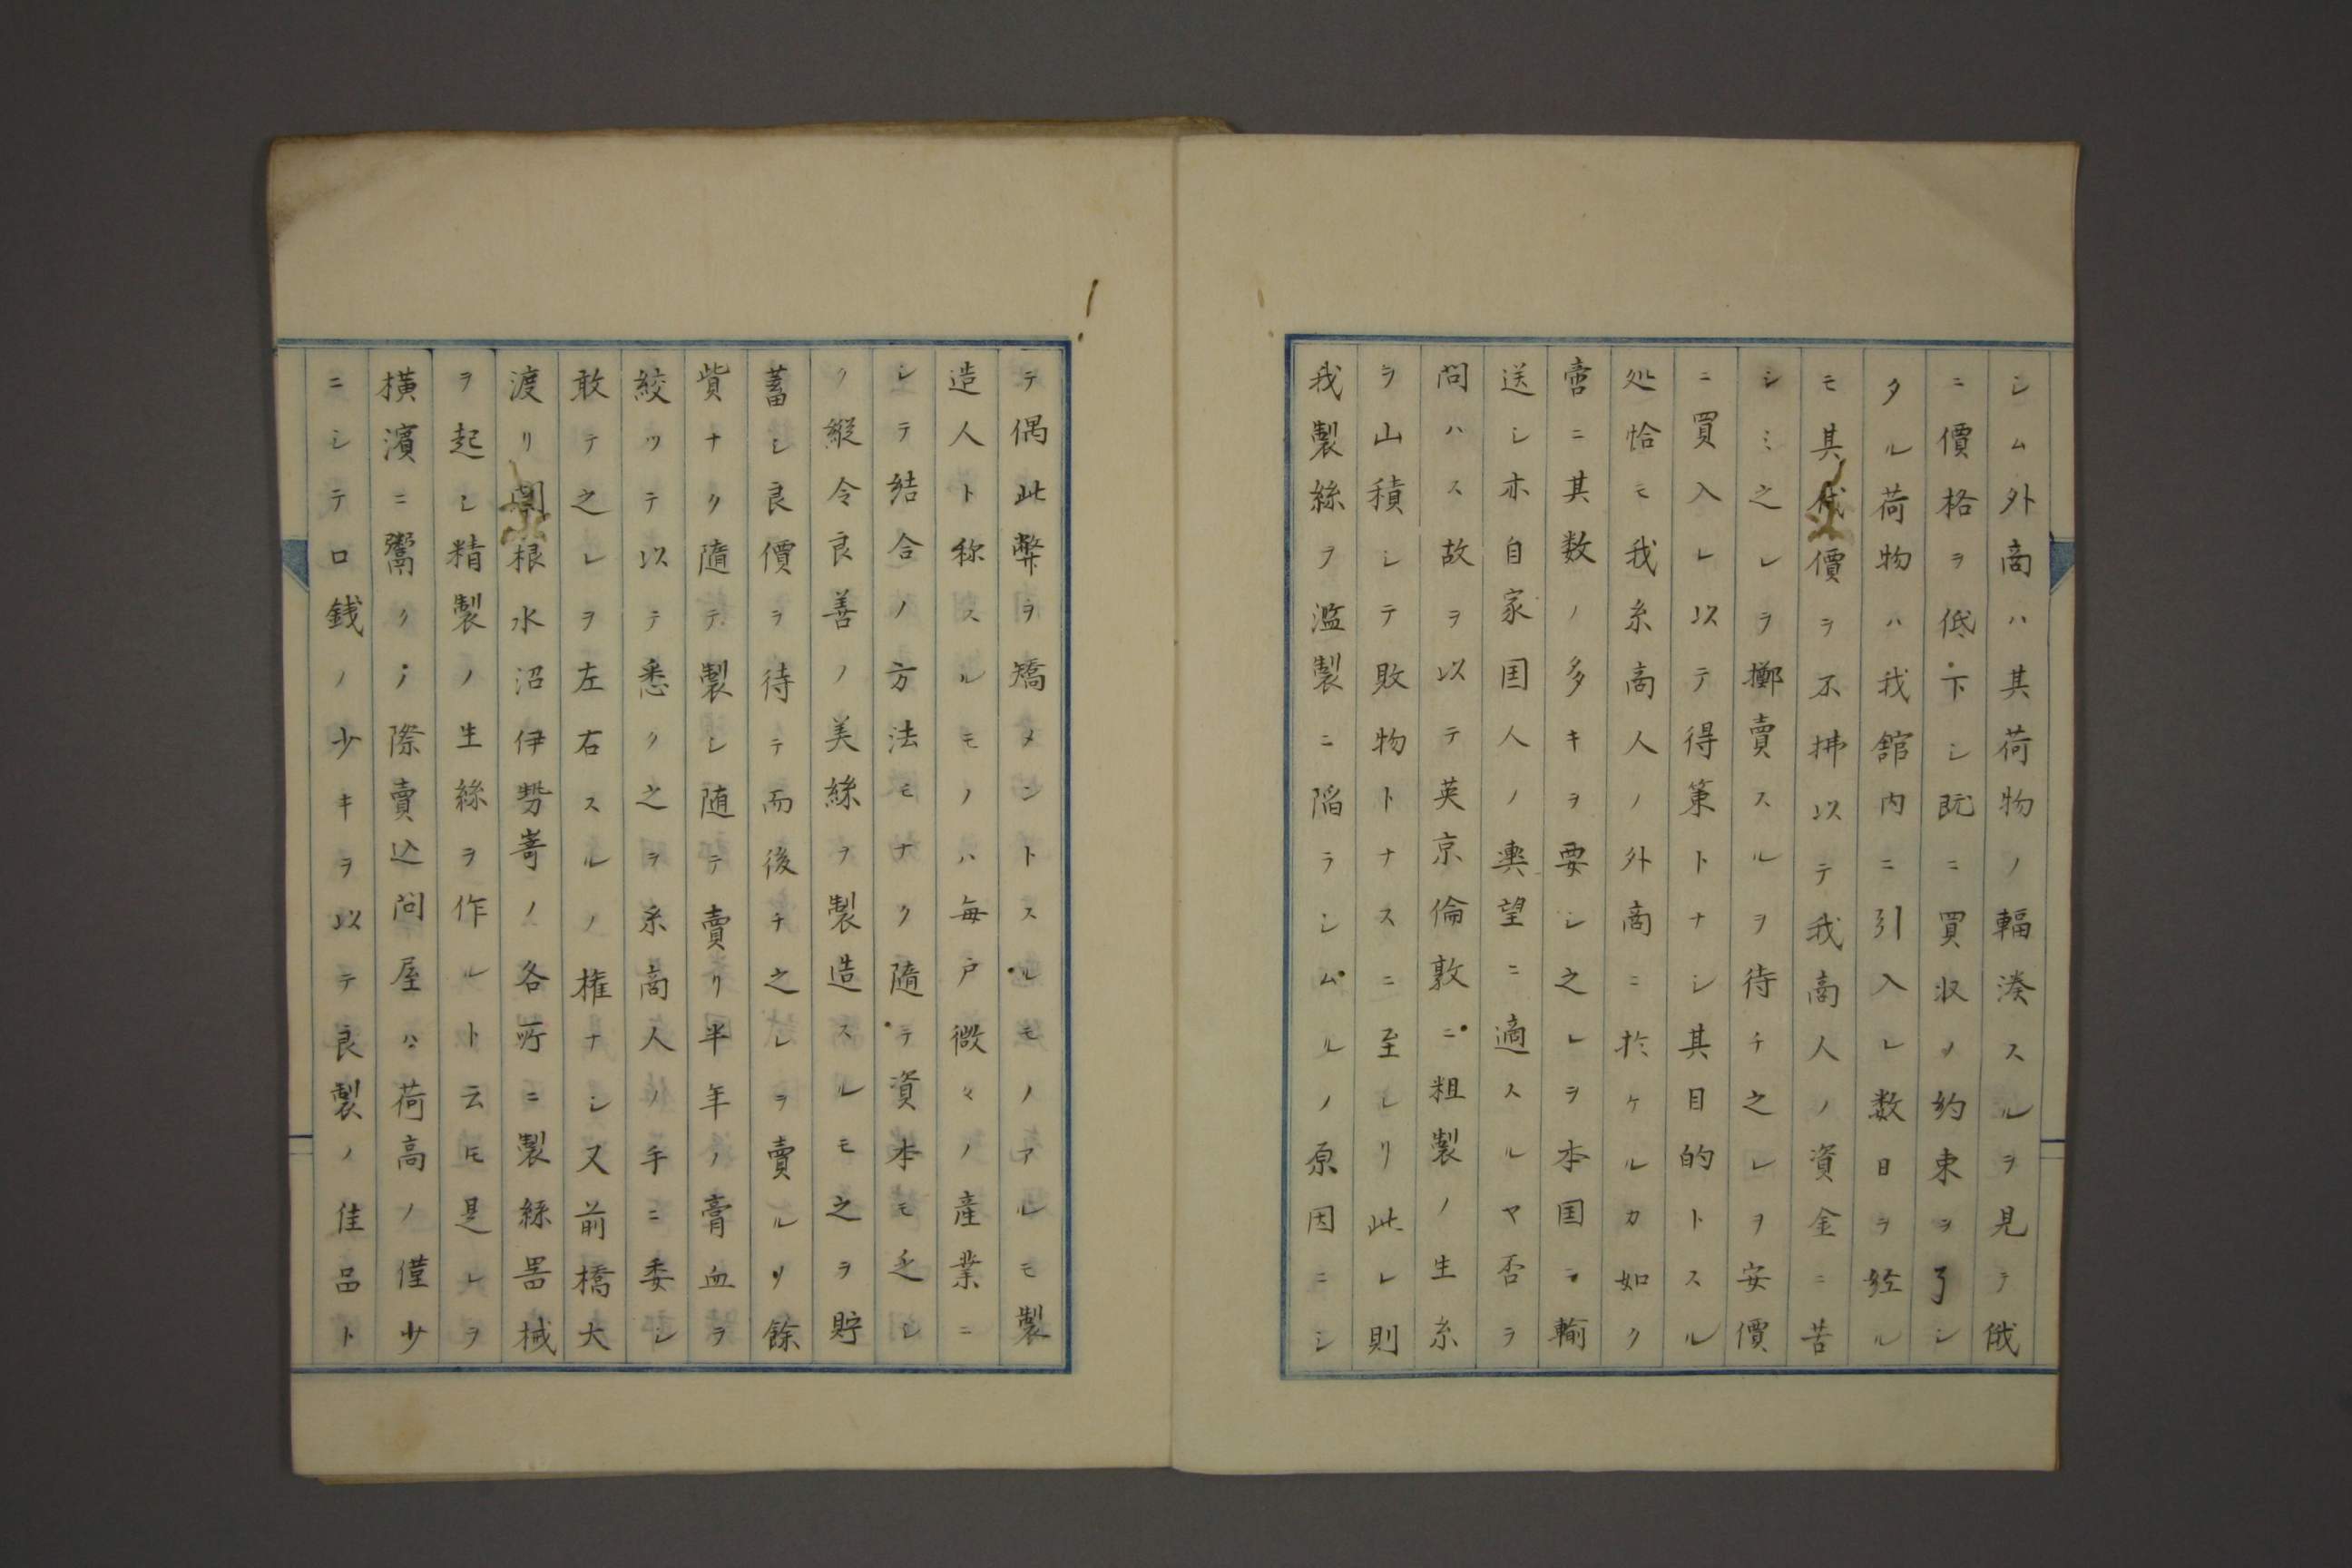 シム外商ハ其荷物ノ輻湊スルヲ見テ俄
ニ價格ヲ低下シ既ニ買収ノ約束ヲ了シ
タル荷物ハ我舘内ニ引入レ数日ヲ経ル
モ其代價ヲ不拂以テ我商人ノ資金ニ苦
シミ之レヲ擲賣スルヲ待チ之レヲ安價
ニ買入レ以テ得策トナシ其目的トスル
処恰モ我糸商人ノ外商ニ於ケルカ如ク
啻ニ其数ノ多キヲ要シ之レヲ本国ニ輸
送シ亦自家国人ノ輿望ニ適スルヤ否ヲ
問ハス故ヲ以テ英京倫敦ニ粗製ノ生糸
ヲ山積シテ敗物トナスニ至レリ此レ則
我製絲ヲ濫製ニ陥ラシムルノ原因ニシ
テ偶此弊ヲ矯メントスルモノアルモ製
造人ト称スルモノハ毎戸微々ノ産業ニ
シテ結合ノ方法モナク隨テ資本モ乏シ
ク縦令良善ノ美絲ヲ製造スルモ之ヲ貯
蓄シ良價ヲ待テ而後チ之レヲ賣ルノ餘
貲ナク隨テ製シ随テ賣リ半年ノ膏血ヲ
絞ツテ以テ悉ク之ヲ糸商人ノ手ニ委シ
敢テ之レヲ左右スルノ権ナシ又前橋大
渡リ関根水沼伊勢嵜ノ各所ニ製絲噐械
ヲ起シ精製ノ生絲ヲ作ルト云モ是レヲ
横濱ニ鬻クノ際賣込問屋ハ荷高ノ僅少
ニシテ口銭ノ少キヲ以テ良製ノ佳品ト